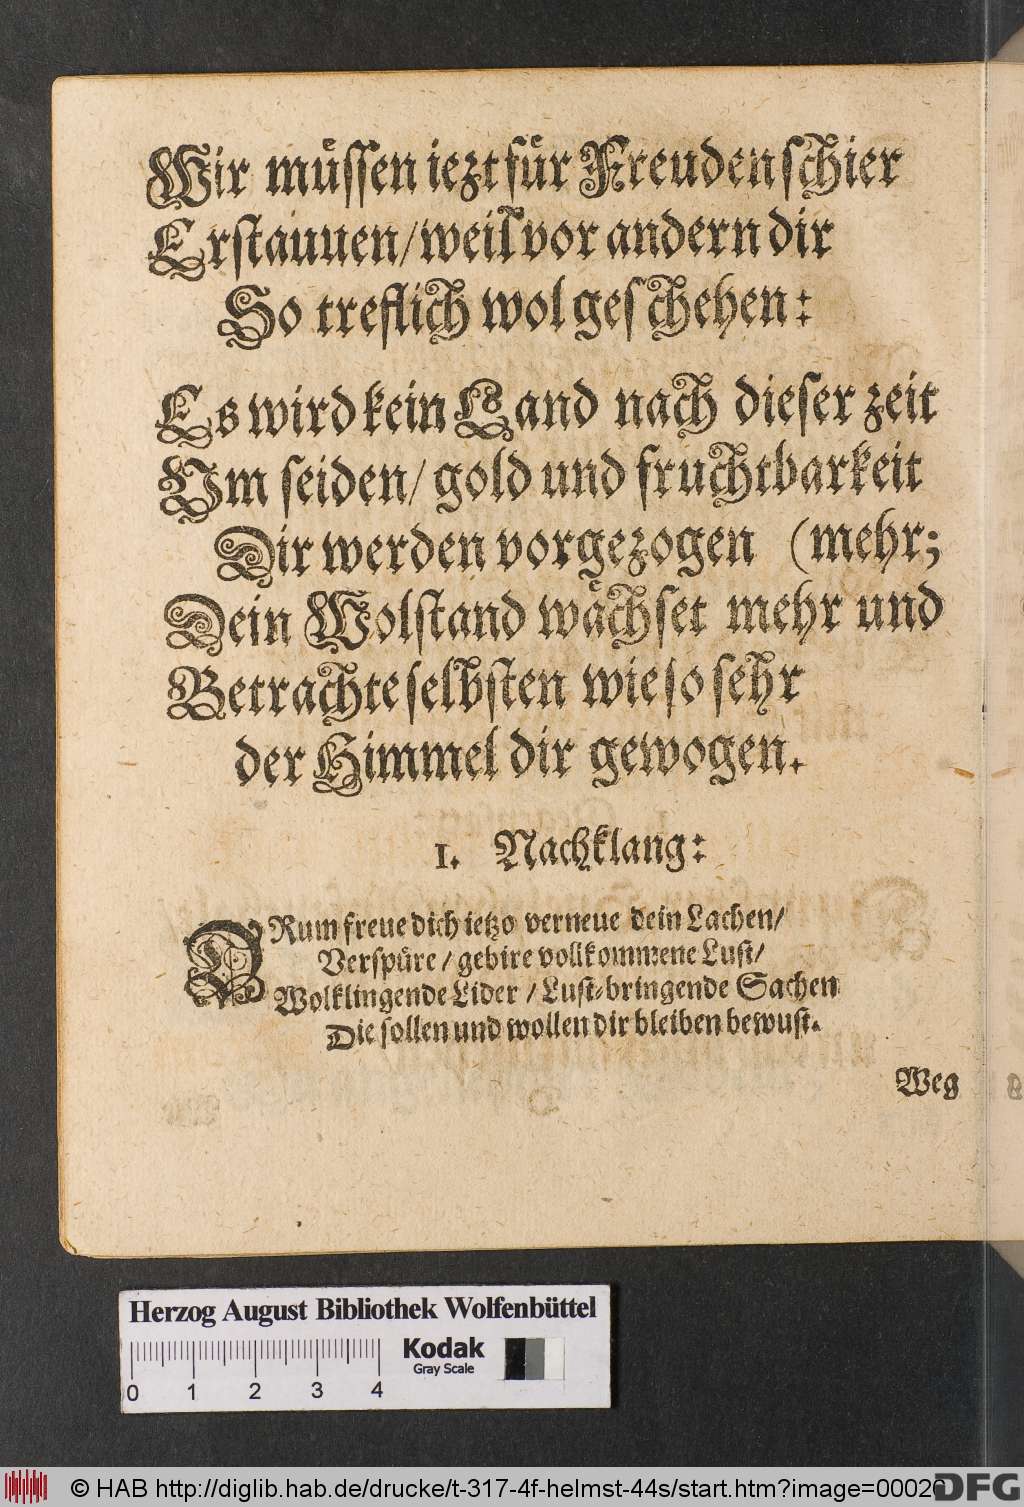 Wir müssen iezt für Freuden schier
Erstauuen/ weil vor andern dir
So treflich wol geschehen:
Es wird kein Land nach dieser zeit
Um seiden/ gold und fruchtbarkeit
Dir werden vorgezogen (mehr;
Dein Wolstand wächset mehr und
Betrachte selbsten wie so sehr
der Himmel dir gewogen.
1. Nachklang:
DRum freue dich ietzo verneue dein Lachen/
Verspüre/ gebire vollkommene Lust/
Wolklingende Lider/ Lust-bringende Sachen
Die sollen und wollen dir bleiben bewust.
Weg
Herzog August Bibliothek Wolfenbüttel
Kodak
Gray Scale
0 1 2 3 4
© HAB http://diglib.hab.de/drucke/t-317-4f-helmst-44s/start.htm?image=00026
DFG